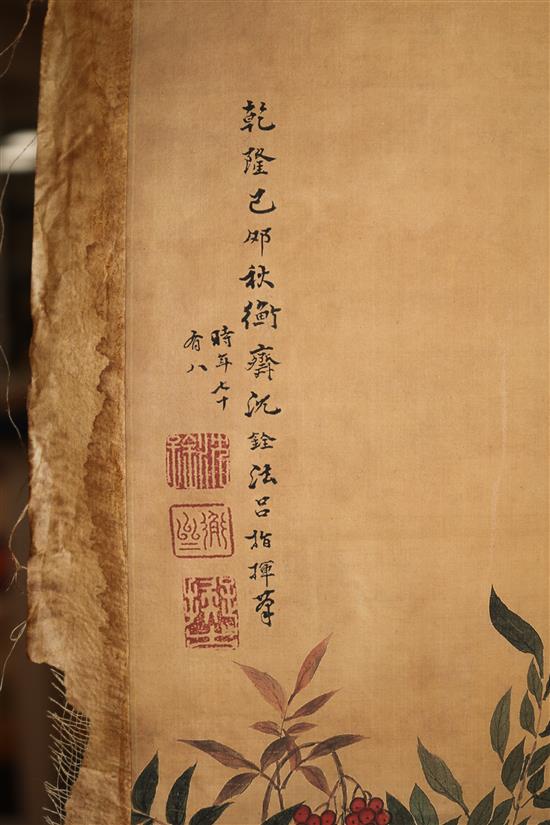 乾隆己卯秋衡齋沈銓法呂指揮筆
時年七十
有八
沈銓